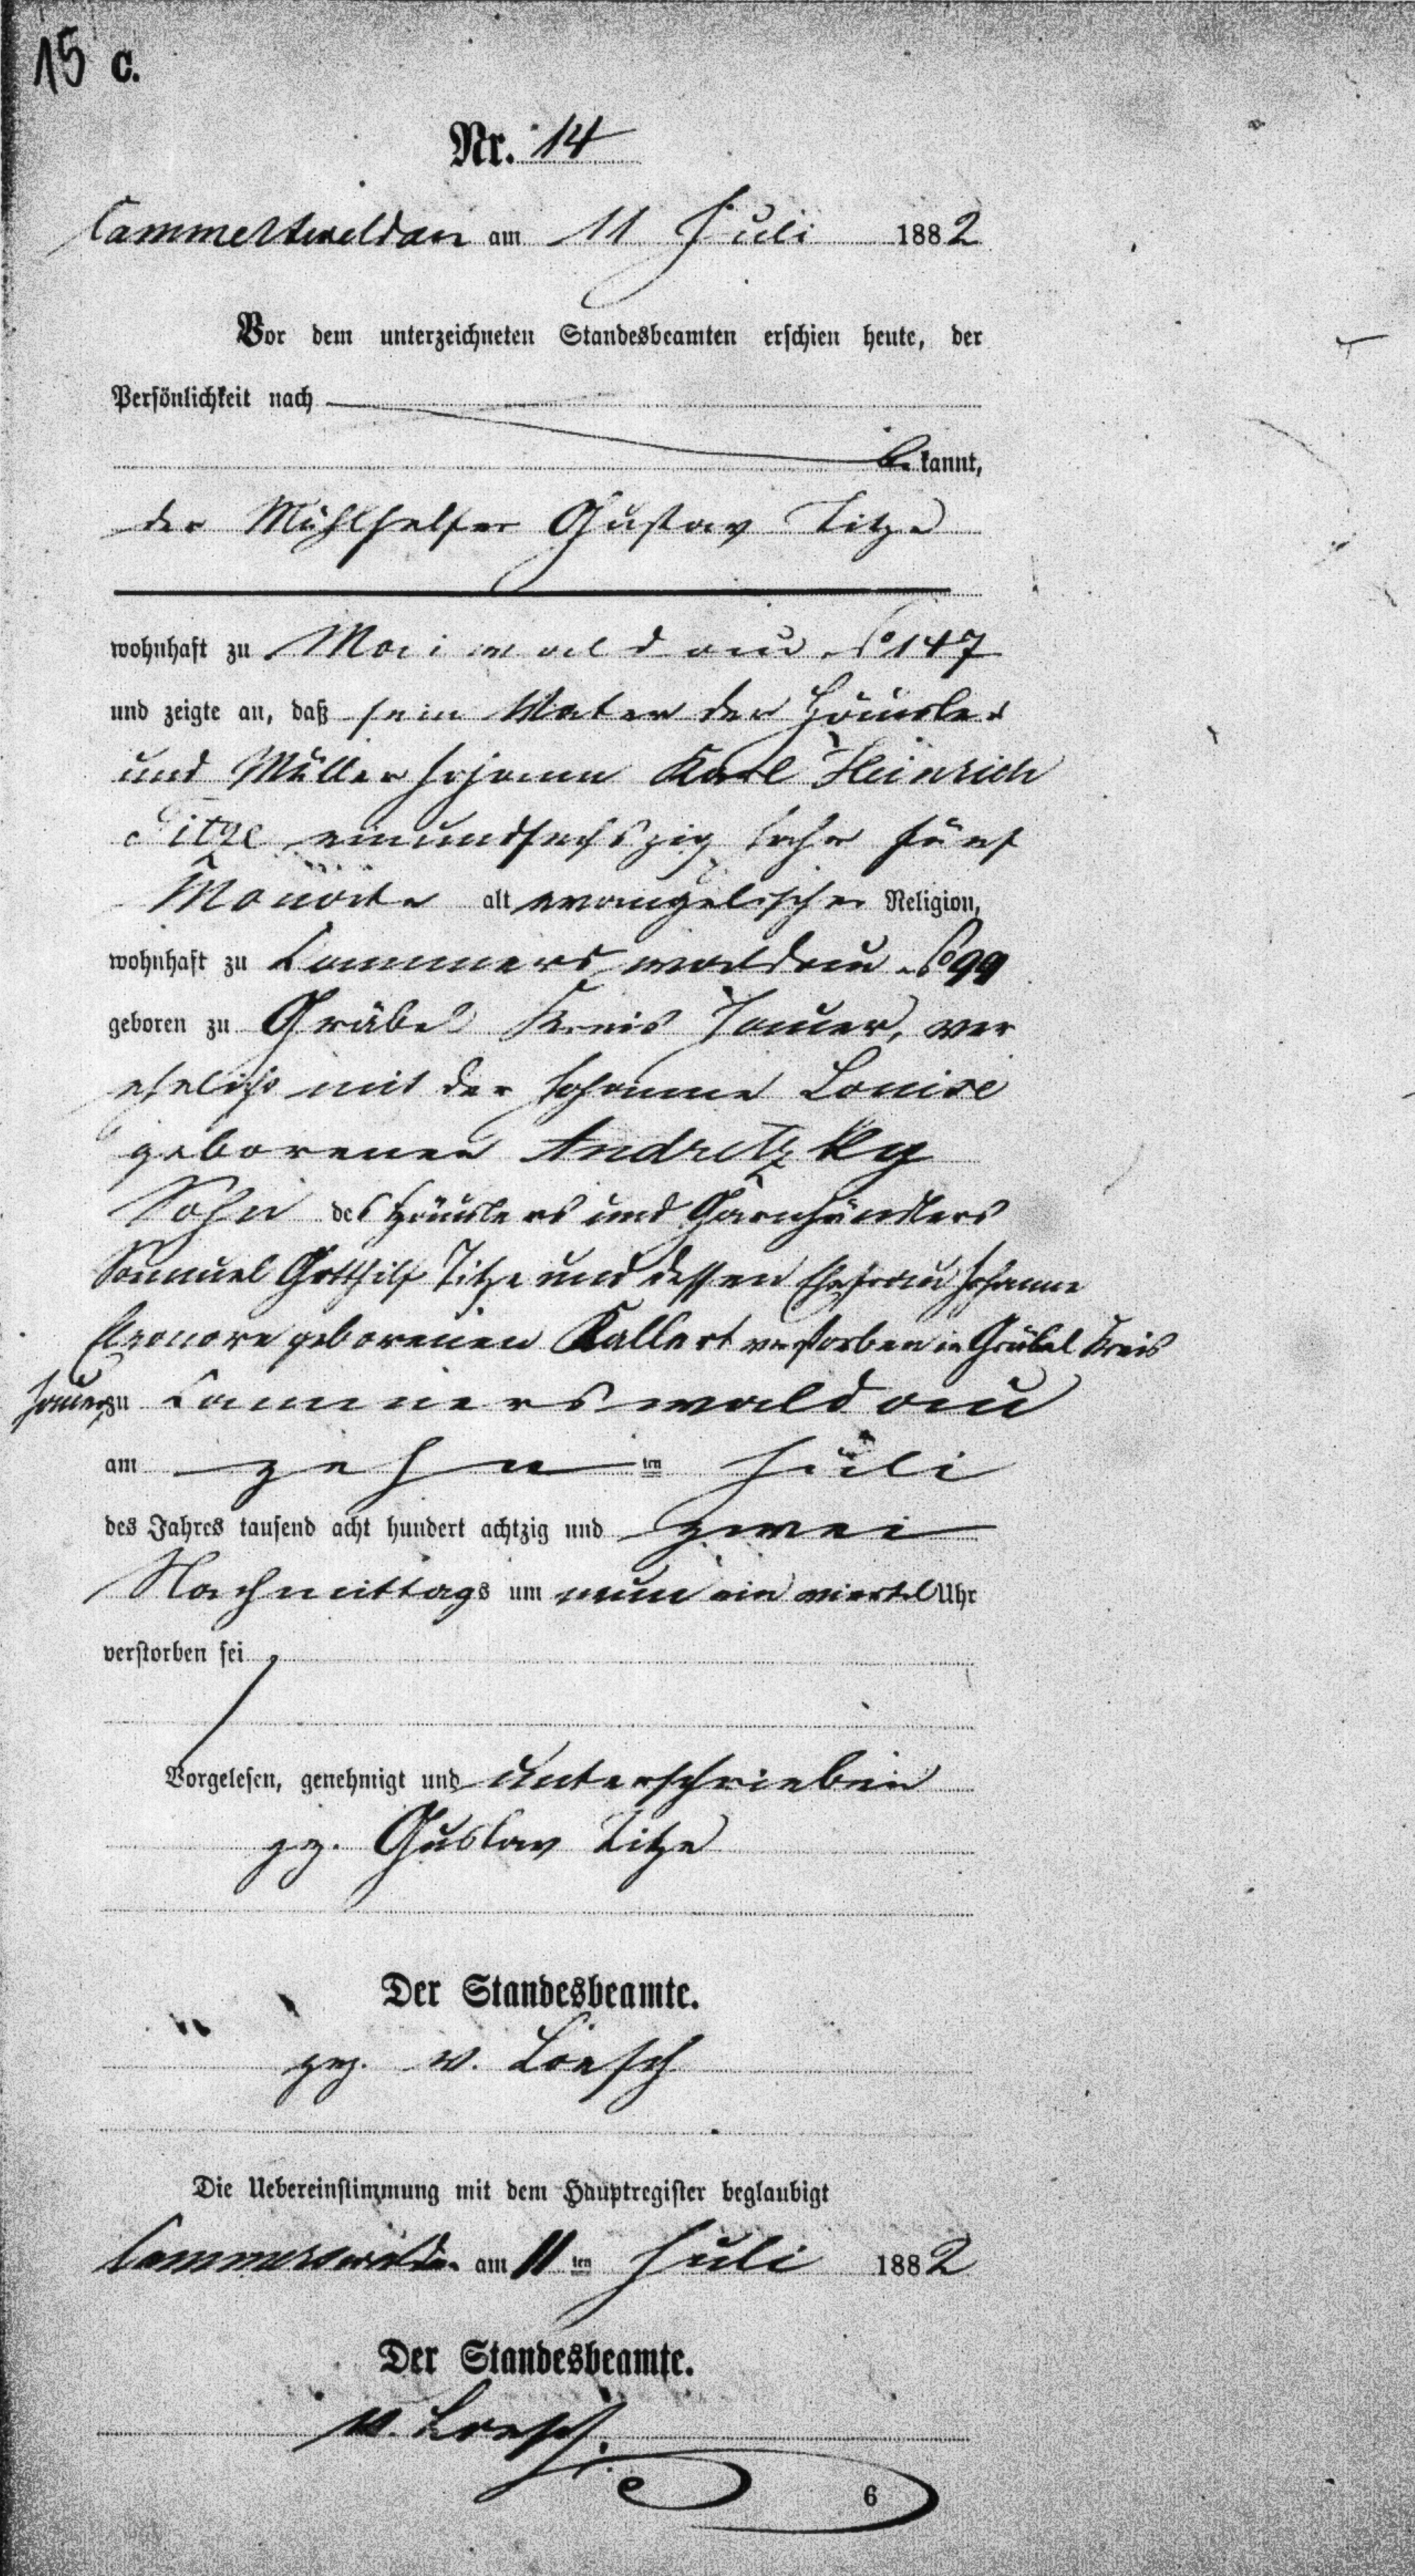 15 C.
Nr. 14
Cammerswaldau am 11 Juli 1882
Vor dem unterzeichneten Standesbeamten erschien heute, der
Persönlichkeit nach
be kannt,
der Mühlhelfer Gustav Titze
wohnhaft zu Maiwaldau No 147
und zeigte an, daß sein Vater der Häusler
und Müller Johann Karl Heinrich
Titze einundsechszig Jahr fünf
Monate alt evangelischer Religion,
wohnhaft zu Cammerswaldau No 99
geboren zu Gräbel Kreis Jauer, ver
ehelicht mit der Johanne Louise
geborenen Andretzky
Sohn des Häuslers und Garnhändlers
Samuel Gotthilf Titze und dessen Ehefrau Johanne
Eleonore geborenen Kallert verstorben in Gräbel Kreis
Jauer zu Cammerswaldau
am zehn ten Juli
des Jahres tausend acht hundert achtzig und zwei
Nachmittags um neun ein viertel Uhr
verstorben sei
Vorgelesen, genehmigt und unterschrieben
gez. Gustav Titze
Der Standesbeamte.
gez. v. Loesch
Die Uebereinstimmung mit dem Hauptregister beglaubigt
Cammerswaldau am 11 ten Juli 1882
Der Standesbeamte.
v. Loesch.
6